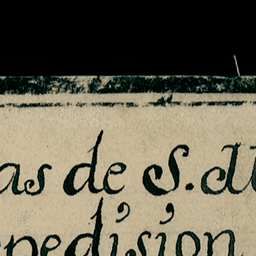 as de S. M
epedision